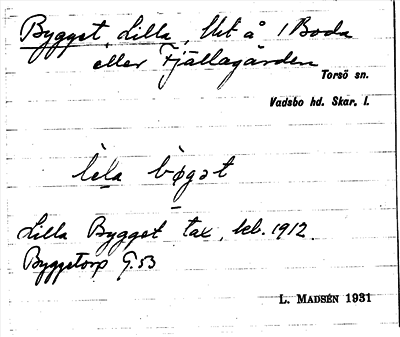 Bygget, Lilla, lht å 1 Boda
eller Fjällagården
Torsö sn.
Vadsbo hd. Skar. l.
lìla bøgət
Lilla Bygget tax, kb. 1912.
Byggetorp G.53
L. MADSÉN 1931